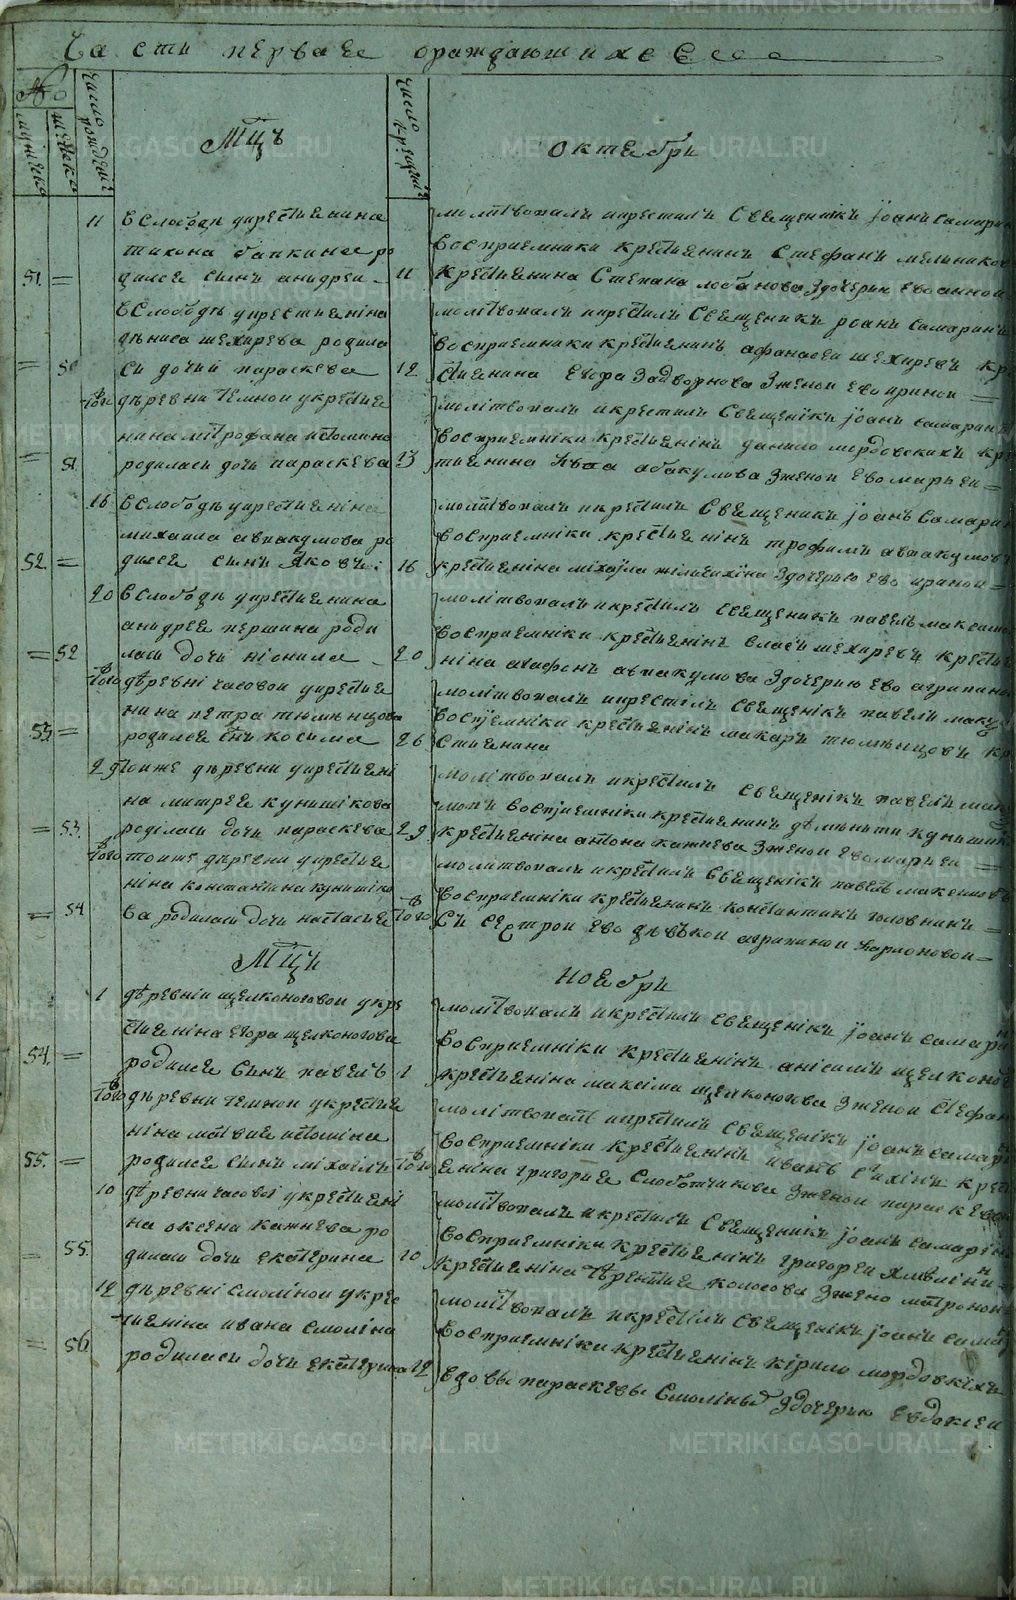 Части первае ораждающихсе
№
мужеска
женска
число рожденiя
число крещенiя
Мцъ
октебри
11 вслободе укрестиенина
тихона бапкина ро
51. = дилсе сынъ анъдреи - 11
молитвовалъ икрестилъ священникъ Iоанъ самарин
восприемники крестиенинъ стефанъ мельников
крестиенина Степана лобанова здочерию ево анной
вслободъ укрестиенина
дениса шехирева родила
= 50 си дочий параскева 12
молитвовалъ икрестилъ священикъ Iоанъ самаринъ
восприемники крестиенинъ афанасеи шехиревъ кр
стиенина егора задворнова зженои ево ириной =
того деревни темнои укрестие
нина митрофана истомина
= 51. родиласи дочь параскева 13
молитвовалъ икрестилъ священикъ Iоанъ самарин
восприемники крестиенинъ данило мордовскихъ кре
тиенина абакумова зженой ево марьеи =
16 вслободъ укрестиенина
михаила авакумова ро
52. = дилсе сынъ Яковъ: 16
молитвовалъ икрестилъ священикъ Iоанъ Самарин
восприемники крестиенинъ трофимъ авакумовъ
крестиенина михаила здочерию ево ириной =
20 вслободъ укрестиенина
анъдрее першина роди
= 52 ласи дочь неонила - 20
молитвовалъ икрестилъ священикъ павелъ максимо
восприемники крестиенинъ власъ шехиревъ крести
нина агафонъ авакумова здочерию ево агрипино
того деревни часовой укрестие
нина петра тюменцова
53. = родилсе сынъ косима 26
молитвовалъ икрестилъ священикъ павелъ макси
восприемники крестиенинъ макаръ тюменцовъ кр
стиенина
29 тоиже деревни укрестиени
на митрее кунишкова
= 53. родиласи дочь параскева 29
молитвовалъ икрестилъ священикъ павелъ мак
мовъ восприемники крестиенинъ дементи куниши
крестиенина антона кажнева зженой ево марьеи =
того тоиже деревни укрестие
нина константина кунишко
= 54 ва родиласи дочь настасье того
молитвовалъ икрестилъ священикъ павелъ максимовъ
восприемники крестиенинъ константинъ головнинъ =
съ сестрои ево девъкой агрипиной ларионовой =
Мцъ
ноебри
1 деревни щелконоговой укре
стиенина егора щелконогова
54. = родилсе сынъ павелъ 1
молитвовалъ икрестилъ священикъ Iоанъ самарин
восприемники крестиенинъ анисимъ щелконого
крестиенина максима щелконогова зженой стефан
того деревни темной укрестие
нина матвие истомина
55. = родилсе сынъ михаилъ того
молитвовалъ икрестилъ священикъ Iоанъ самари
восприемники крестиенинъ иванъ крест
енина григорие слобочикова зженой параскево
10 деревни часовой укрестиени
на оксена кажнева ро
= 55. дилаши дочь екатерина 10
молитвовалъ икрестилъ священикъ Iоанъ самарин
восприемники крестиенинъ григорей
крестиенина терентие колосова зжено матроной
12 деревни смолиной укрес
тиенина ивана смолина
= 56 родиласи дочь екатерина 12
молитвовалъ икрестилъ священикъ Iоанъ самар
восприемники крестиенинъ кирило мордовкихъ
вдовы параскевы смолины здочерию евдокией
METRIKI.GASO-URAL.RU